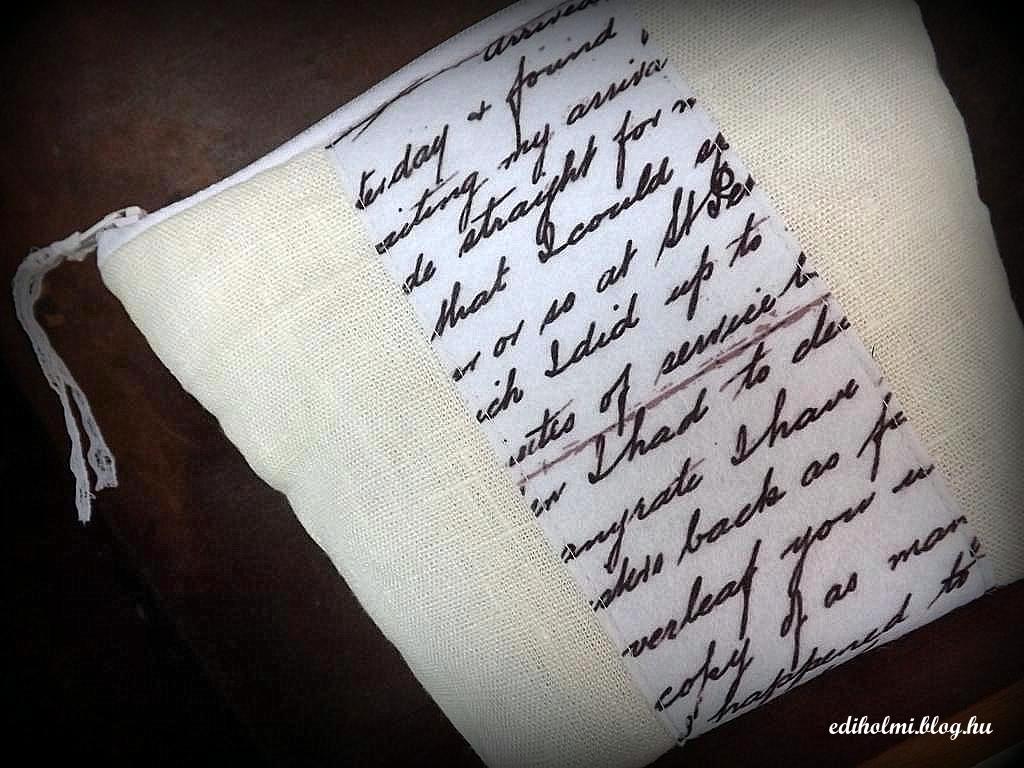 arrived
terday & found
my arriva
de straight for
that I could
or so at St Pe
ich I did up to
utes of service
I had to de
I have
back as
overleaf you
copy of as man
happened to
ediholmi.blog.hu